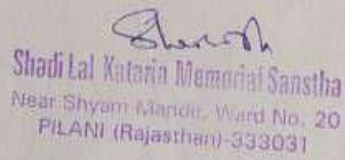 Shadi Lal Kataria Memorial Sanstha
Near Shyam Mandir, Ward No. 20
PILANI (Rajasthan)-333031